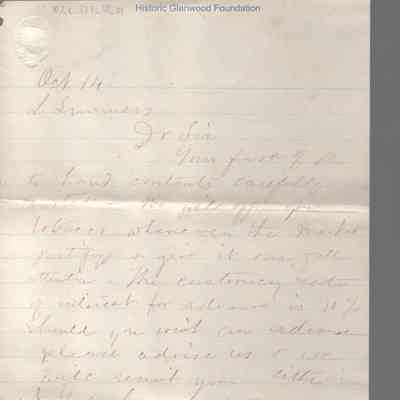 Historic Glenwood Foundation
Oct 14
L Summers
Dr Sir
Your favor of
to hand contents carefully
We will
tobacco whenever the market
justify & give it our
attention. The customary rate
of interest for advance is 10%
Should you wish an advance
please advise us & we
will remit you either